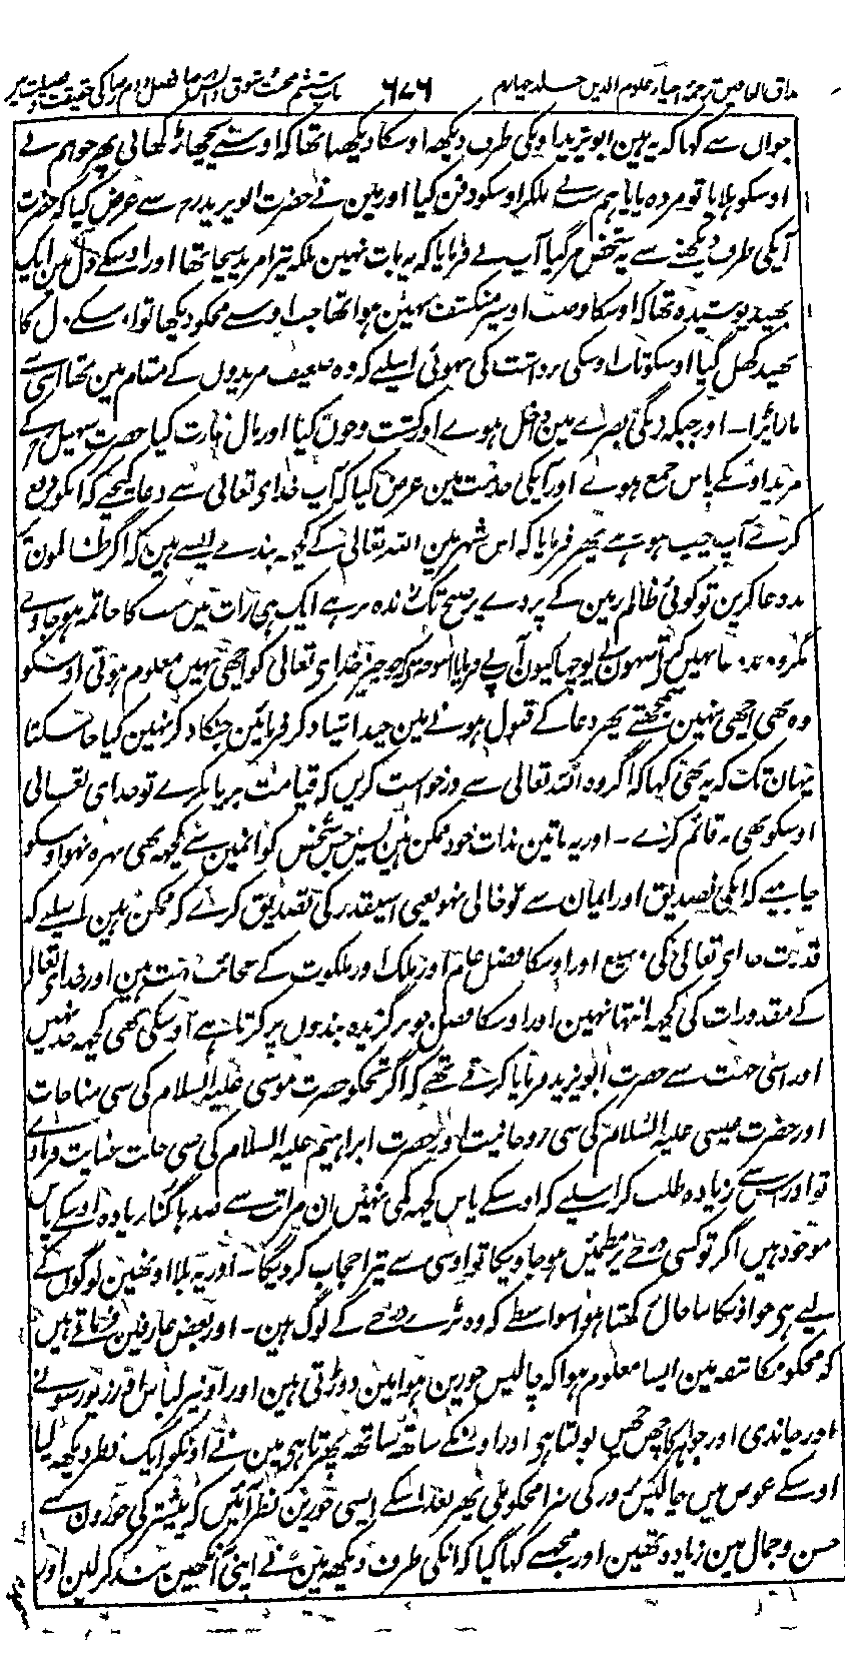 مذاق العارفین ترجمہ احیاء علوم الدین جلد چہارم ۶۷۶ باب ششم محبت و شوق فصل دوم رضا کی حقیقت و فضیلت میں
جوان سے کہا کہ یہ ہین ابو یزید اونکی طرف دیکھہ اوسکا دیکھنا تھا کہ اوسنے پچھاڑ کھائی پھر جو ہم نے
اوسکو ہلایا تو مردہ پایا ہم سب نے ملکر اوسکو دفن کیا اور مین نے حضرت ابو یزید رح سے عرض کیا کہ حضرت
آپکی طرف دیکھنے سے یہ شخص مر گیا آپ نے فرمایا کہ یہ بات نہین بلکہ تیرا مرید سچا تھا اور اوسکے دل مین ایک
بھید پوشیدہ تھا کہ اوسکا وصف اوسپر منکشف نہین ہوا تھا جب اوسنے مجکو دیکھا تو اوسکے دل کا
بھید کھل گیا اوسکو تاب اوسکی برداشت کی نہوئی اسلیے کہ وہ ضعیف مریدوں کے مقام مین تھا اسی سے
مارا پڑا۔ اور جبکہ زنگی بصرے مین داخل ہوے اور کشت و خون کیا اور مال غارت کیا حضرت سہیل رح کے
مرید اونکے پاس جمع ہوے اور آپکی خدمت مین عرض کیا کہ آپ خدای تعالی سے دعا کیجیے کہ انکو دفع
کرے آپ چپ ہو رہے پھر فرمایا کہ اس شہر مین اللہ تعالی کے کچھہ بندے ایسے ہین کہ اگر ظالمون پر
بددعا کرین تو کوئی ظالم زمین کے پردے پر صبح تک زندہ نہ رہے ایک ہی رات مین سب کا خاتمہ ہو جاوے
مگر وہ بددعا نہیں کرتے اونہوں نے پوچھا کیون آپ نے فرمایا اسوجہ سے کہ جو چیز خدای تعالی کو اچھی نہیں معلوم ہوتی اوسکو
وہ بھی اچھی نہین سمجھتے پھر دعا کے قبول ہونے مین چند اشیا ذکر فرمائین جنکا ذکر نہین کیا جا سکتا
یہان تک کہ یہ بھی کہا کہ اگر وہ اللہ تعالی سے درخواست کریں کہ قیامت برپا نکرے تو خدای تعالی
اوسکو بھی نہ قائم کرے۔ اور یہ باتین بذات خود ممکن ہین پس جس شخص کو انمین سے کچھہ بھی بہرہ نہو اوسکو
چاہیے کہ انکی تصدیق اور ایمان سے تو خالی نہو یعنی اسیقدر کی تصدیق کرے کہ ممکن ہین اسلیے کہ
قدرت خدای تعالی کی وسیع اور اوسکا فضل عام اور ملک اور ملکوت کے عجائب بہت ہین اور خدای تعالی
کے مقدورات کی کچھہ انتہا نہین اور اوسکا فضل جو برگزیدہ بندوں پر کرتا ہے اوسکی بھی کچھہ حد نہین
اور اسی جہت سے حضرت ابو یزید فرمایا کرتے تھے کہ اگر تجکو حضرت موسی علیہ السلام کی سی مناجات
اور حضرت عیسی علیہ السلام کی سی روحانیت اور حضرت ابراہیم علیہ السلام کی سی خلت عنایت فرماوے
تو اور اس سے زیادہ طلب کر اسلیے کہ اوسکے پاس کچھہ کمی نہیں ان مراتب سے صدہا گنا زیادہ اوسکے پاس
موجود ہیں اگر تو کسی درجے پر مطمئن ہو جاویگا تو اوسی سے تیرا حجاب کر دیگا۔ اور یہ بلا اونھین لوگوں کے
لیے ہی جو انکا سا حال رکھتا ہو اسواسطے کہ وہ بڑے درجے کے لوگ ہین۔ اور بعض عارفین فرماتے ہیں
کہ مجکو مکاشفہ مین ایسا معلوم ہوا کہ چالیس حورین ہوا مین دوڑتی ہین اور اونپر لباس اور زیور سونے
اور چاندی اور جواہر کا چھن چھن بولتا ہی اور اونکے ساتھہ ساتھہ پھرتا ہی مین نے اونکو ایک نظر دیکھہ لیا
اوسکے عوض مین چالیس روز کی سزا مجکو ملی پھر بعد اسکے ایسی حورین نظر آئین کہ پیشتر کی حورون سے
حسن و جمال مین زیادہ تھین اور مجھسے کہا گیا کہ انکی طرف دیکھہ مین نے اپنی آنکھین بند کر لین اور